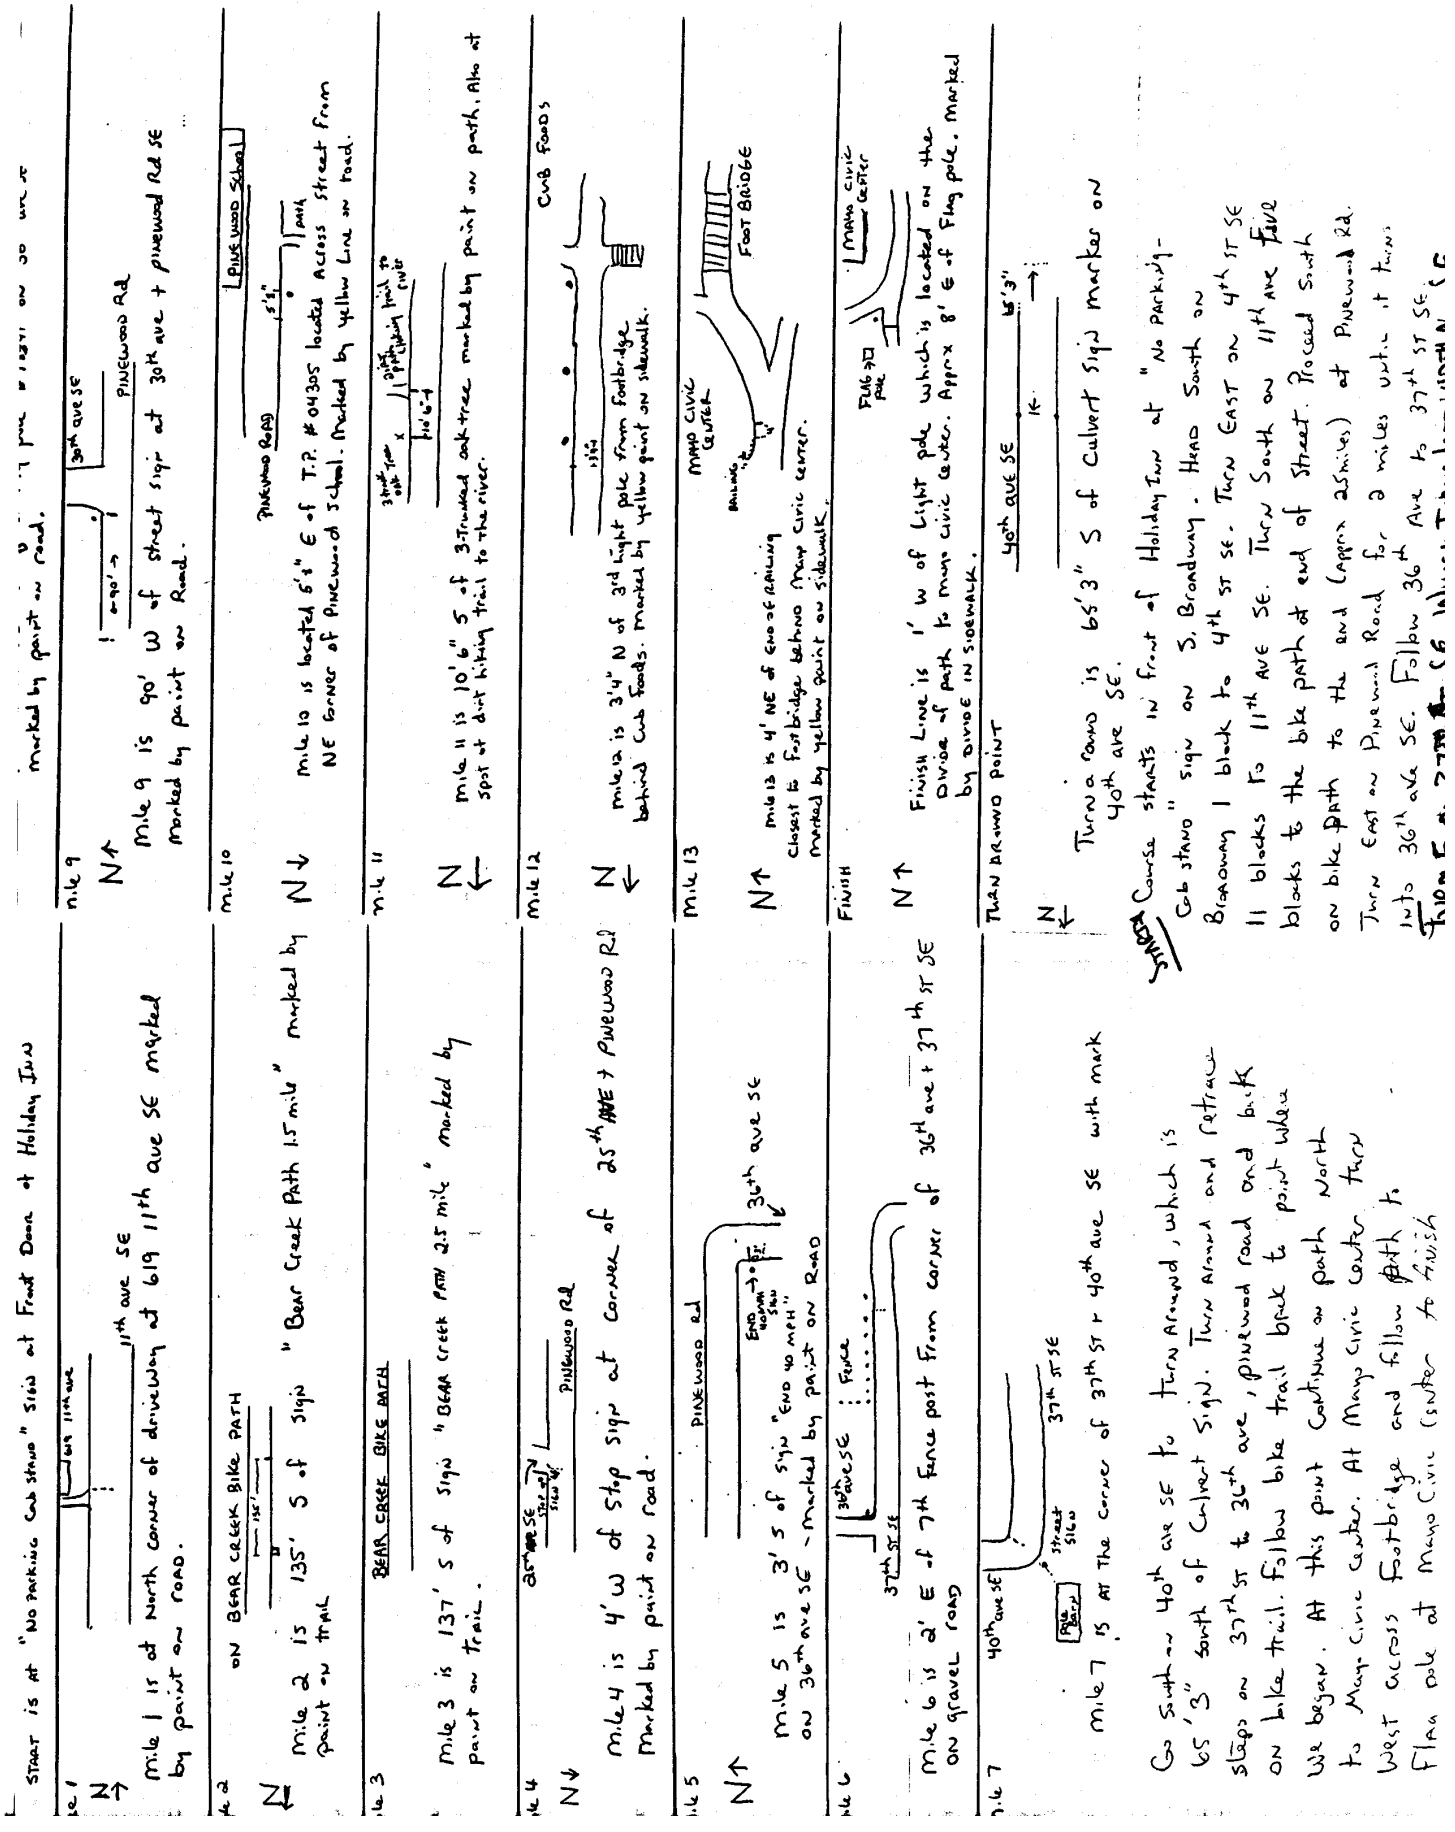 START is At "No Parking Cab Stand" Sign at Front Door of Holiday Inn
619 11th ave
11th ave SE
N
mile 1 is at North corner of driveway at 619 11th ave SE marked
by paint on road.
ON BEAR CREEK Bike PATH
135'
N
mile 2 is 135' S of sign "Bear Creek Path 1.5 mile" marked by
paint on trail
BEAR CREEK BIKE PATH
mile 3 is 137' S of sign "BEAR Creek PATH 2.5 mile" marked by
paint on trail.
25th ave SE
STOP SIGN
PINEWOOD Rd
N
mile 4 is 4' W of stop sign at corner of 25th AVE + PINEWOOD Rd
marked by paint on road.
PINEWOOD Rd
END 40MPH SIGN
36th ave SE
N
mile 5 is 3' S of sign "END 40 MPH"
on 36th ave SE - marked by paint on ROAD
36th ave SE
Fence
37th ST SE
mile 6 is 2' E of 7th Fence post from corner of 36th ave + 37th ST SE
on gravel road
mile 7
40th ave SE
Pole Barn
Street SIGN
37th ST SE
mile 7 is AT The corner of 37th ST + 40th ave SE with mark
Go South on 40th ave SE to turn around, which is
65' 3" south of Culvert Sign. Turn Around and retrace
steps on 37th ST to 36th ave, pinewood road and back
on bike trail. Follow bike trail back to point where
we began. At this point continue on path North
to Mayo Civic Center. At Mayo Civic Center turn
West across Footbridge and follow path to
Flag pole at Mayo Civic Center to finish
marked by paint on road.
mile 9
30th ave SE
PINEWOOD Rd
90'
N
mile 9 is 90' W of street sign at 30th ave + pinewood Rd SE
marked by paint on Road.
mile 10
PINEWOOD School
PINEWOOD ROAD
5'8"
PATH
N
mile 10 is located 5'8" E of T.P. #04305 located Across Street From
NE corner of Pinewood School. Marked by yellow Line on road.
mile 11
3 trunk oak Tree
10'6"
Dirt path hiking trail to river
N
mile 11 is 10' 6" S of 3-Trunked oak tree marked by paint on path. Also at
spot at dirt hiking trail to the river.
mile 12
CUB FOODS
N
mile 12 is 3'4" N of 3rd Light pole from footbridge
behind Cub Foods. marked by yellow paint on sidewalk.
mile 13
MAYO CIVIC CENTER
RAILING
4'
FOOT BRIDGE
N
mile 13 is 4' NE of END OF RAILING
Closest to Footbridge behind Mayo Civic center.
Marked by yellow paint on sidewalk.
FINISH
MAYO CIVIC CENTER
FLAG pole
N
FINISH LINE is 1' W of Light pole which is located on the
Divide of path to mayo civic center. Approx 8' E of Flag pole. Marked
by DIVIDE IN SIDEWALK.
TURN AROUND POINT
40th ave SE
65'3"
N
Turn around is 65'3" S of Culvert sign marker on
40th ave SE.
START Course starts in front of Holiday Inn at "No Parking-
Cab STAND" sign on S. Broadway. HEAD South on
Broadway 1 block to 4th ST SE. Turn EAST on 4th ST SE
11 blocks to 11th AVE SE. Turn South on 11th AVE Five
blocks to the bike path at end of street. Proceed South
on bike path to the end (approx 2.5 miles) at Pinewood Rd.
Turn East on Pinewood Road for 2 miles until it turns
into 36th ave SE. Follow 36th Ave to 37th ST SE.